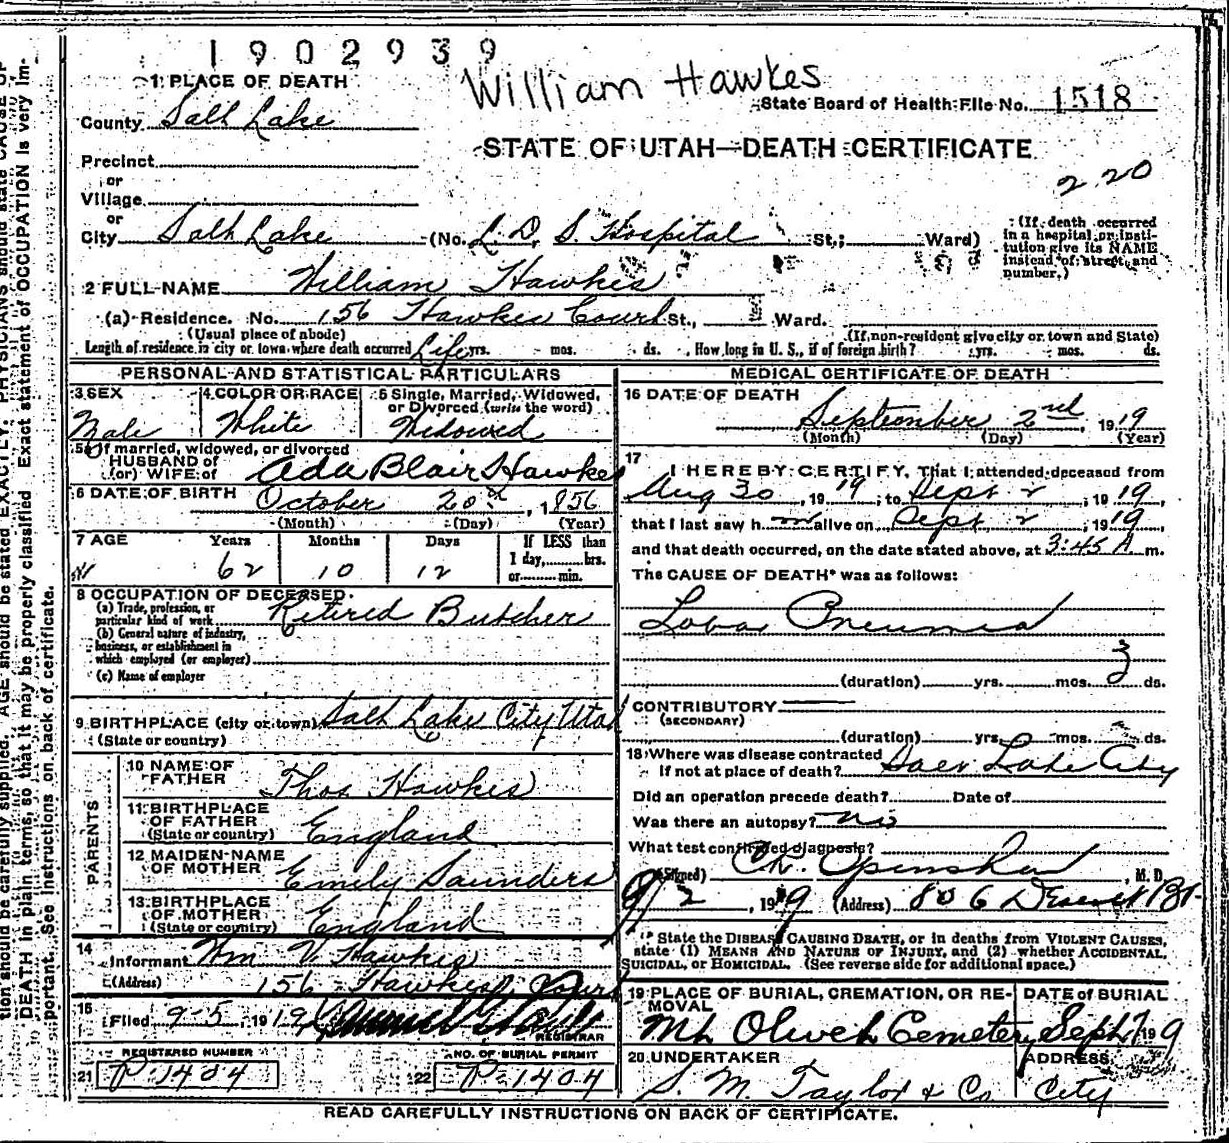 1902939
William Hawkes
1 PLACE OF DEATH
State Board of Health File No. 1518
County Salt Lake
STATE OF UTAH—DEATH CERTIFICATE
Precinct
2 20
or
Village
or
City Salt Lake (No. L. D. S. Hospital St.; Ward)
(If death occurred in a hospital or insti-
tution give its NAME
instead of street and
number.)
2 FULL NAME William Hawkes
(a) Residence. No. 156 Hawkes Court St., Ward.
(Usual place of abode) (If non-resident give city or town and State)
Length of residence in city or town where death occurred Life yrs. mos. ds. How long in U. S., if of foreign birth? yrs. mos. ds.
PERSONAL AND STATISTICAL PARTICULARS
3 SEX
Male
4 COLOR OR RACE
White
5 Single, Married, Widowed,
or Divorced (write the word)
Widowed
5a If married, widowed, or divorced
HUSBAND of
(or) WIFE of Ada Blair Hawkes
6 DATE OF BIRTH October 20, 1856
(Month) (Day) (Year)
7 AGE Years Months Days If LESS than
1 day, hrs.
or min.
62 10 12
8 OCCUPATION OF DECEASED.
(a) Trade, profession, or
particular kind of work Retired Butcher
(b) General nature of industry,
business, or establishment in
which employed (or employer)
(c) Name of employer
9 BIRTHPLACE (city or town) Salt Lake City Utah
(State or country)
PARENTS
10 NAME OF
FATHER Thos Hawkes
11 BIRTHPLACE
OF FATHER
(State or country) England
12 MAIDEN NAME
OF MOTHER Emily Saunders
13 BIRTHPLACE
OF MOTHER
(State or country) England
14
Informant Wm V. Hawkes
(Address) 156 Hawkes Court
15
Filed 9-5, 1919
REGISTRAR
REGISTERED NUMBER
21 P-1404
NO. OF BURIAL PERMIT
22 P-1404
MEDICAL CERTIFICATE OF DEATH
16 DATE OF DEATH
September 2nd, 1919
(Month) (Day) (Year)
17
I HEREBY CERTIFY, That I attended deceased from
Aug 30, 1919, to Sept 2, 1919,
that I last saw h m alive on Sept 2, 1919,
and that death occurred, on the date stated above, at 3:45 A m.
The CAUSE OF DEATH* was as follows:
Lobar Pneumonia
(duration) yrs. mos. 3 ds.
CONTRIBUTORY
(SECONDARY)
(duration) yrs. mos. ds.
18 Where was disease contracted
if not at place of death? Salt Lake City
Did an operation precede death? Date of
Was there an autopsy? no
What test confirmed diagnosis?
(Signed) M. D.
9/2, 1919 (Address) 806 Deseret Bk
* State the DISEASE CAUSING DEATH, or in deaths from VIOLENT CAUSES,
state (1) MEANS AND NATURE OF INJURY, and (2) whether ACCIDENTAL,
SUICIDAL, OR HOMICIDAL. (See reverse side for additional space.)
19 PLACE OF BURIAL, CREMATION, OR RE-
MOVAL
Mt Olivet Cemetery
DATE of BURIAL
Sept 7 19 9
20 UNDERTAKER
S. M. Taylor & Co
ADDRESS
City
READ CAREFULLY INSTRUCTIONS ON BACK OF CERTIFICATE.
tion should be carefully supplied. AGE should be stated EXACTLY. PHYSICIANS should state CAUSE OF
DEATH in plain terms, so that it may be properly classified. Exact statement of OCCUPATION is very im-
portant. See instructions on back of certificate.